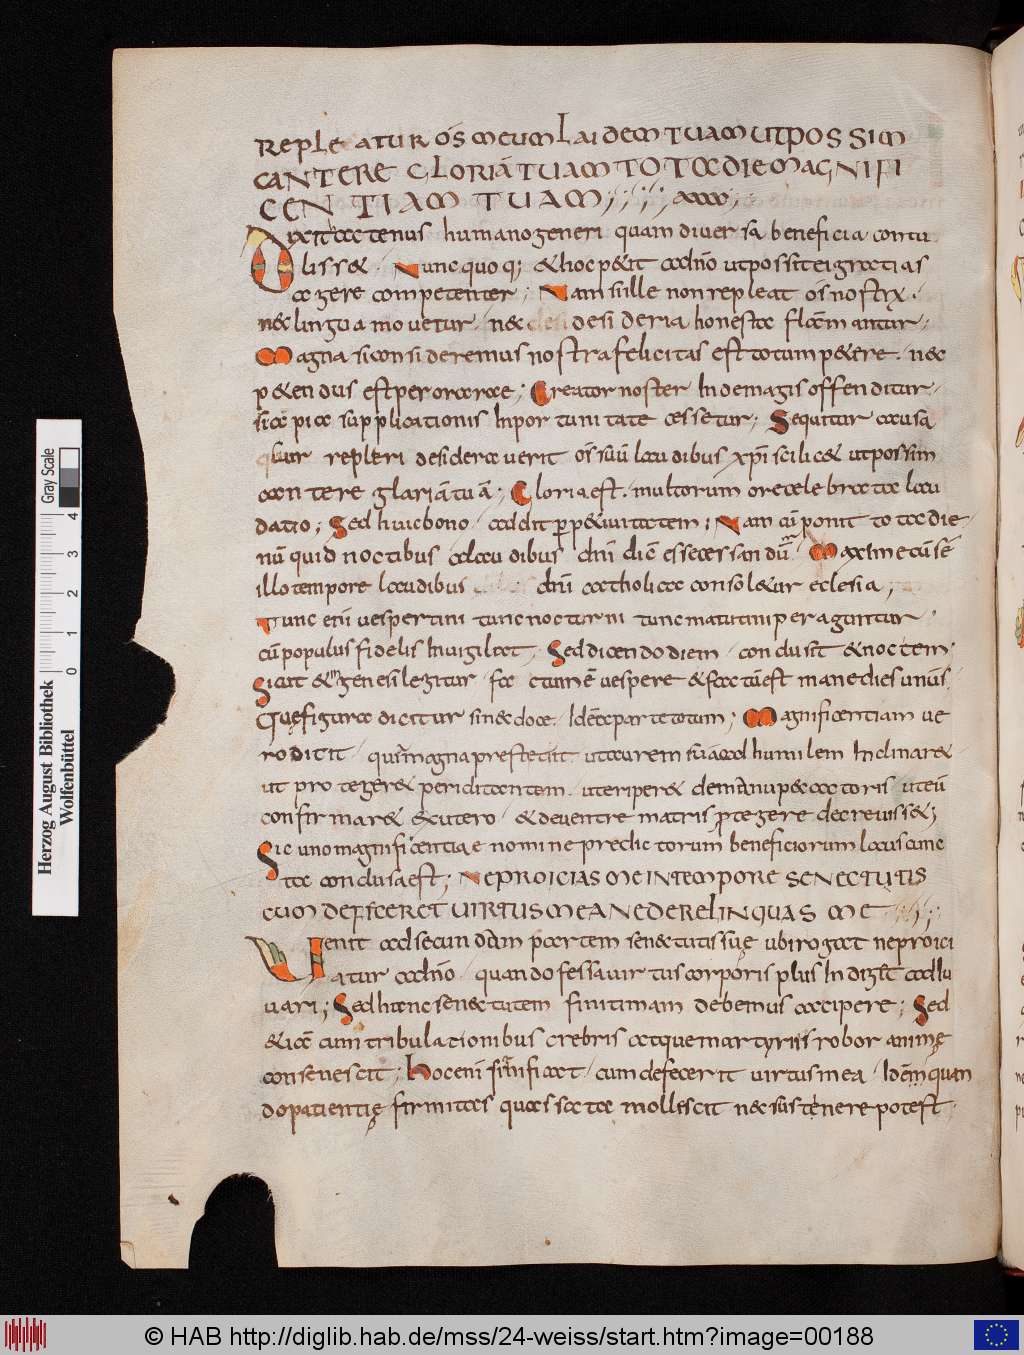 REPLEATUR OS MEUM LAIDEM TUAM UT POSSIM
CANTERE GLORIĀ TUAM TOTA DIE MAGNIFI
CENTIAM TUAM
Dixit actenus humano generi quam diversa beneficia contu
lisset. Nunc quoq; & hoc petit a dn̄o ut possit ei gratias
agere competenter; Nam si ille non repleat os nostrū.
nec lingua movetur. nec desideria honesta flammantur.
Magna si consideremus nostra felicitas est totum petere. nec
petendus est per orare; Creator noster Inde magis offenditur.
si a pia supplicationis Inportunitate cessetur; Sequitur causa
quur repleri desideraverit os suū laudibus xp̄i scilicet ut possim
cantere gloriā tuā; Gloria est. multorum ore celebrata lau
datio; Sed huic bono addit perpetuitatem; Nam cū ponit tota die
nū quid noctibus a laudibus dn̄i dic̄ esse cessandū. Maxime cū sē
illo tempore laudibus dn̄i catholica consoletur eclesia;
Tunc enī vespertini tunc nocturni tunc matutini peraguntur
cū populus fidelis Invigilat; Sed dicendo diem. conclusit & noctem;
Sicut & in genesi legitur. facta tamē vespere & factū est mane dies unus.
Quę figura dicitur sinecdoce. Id est a parte totum; Magnificentiam ve
ro dicit. quia magna prestetit. ut aurem suā ad humilem Inclinaret
ut protegeret periclitantem. ut eriperet de manu peccatoris. ut eū
confirmaret ex utero. & de ventre matris protegere decrevisset;
Sic uno magnificentiae nomine predictorum beneficiorum laus cunc
ta conclusa est; NE PROICIAS ME IN TEMPORE SENECTUTIS
CUM DEFECERET VIRTUS MEA NE DERELINQUAS ME
Venit ad secundam partem senectutis suę ubi rogat ne proici
atur a dn̄o. quando fessa virtus corporis plus Indiget adIu
vari; Sed hanc senectutem finitimam debemus accipere; Sed
cum tribulationibus crebris atque martyriis robor animę
consenescit; Hoc enī significat. cum defecerit virtus mea. Id est quan
do patientię firmitas quassata mollescit nec sustenere potest.
Herzog August Bibliothek
Wolfenbüttel
0 1 2 3 4
Gray Scale
© HAB http://diglib.hab.de/mss/24-weiss/start.htm?image=00188